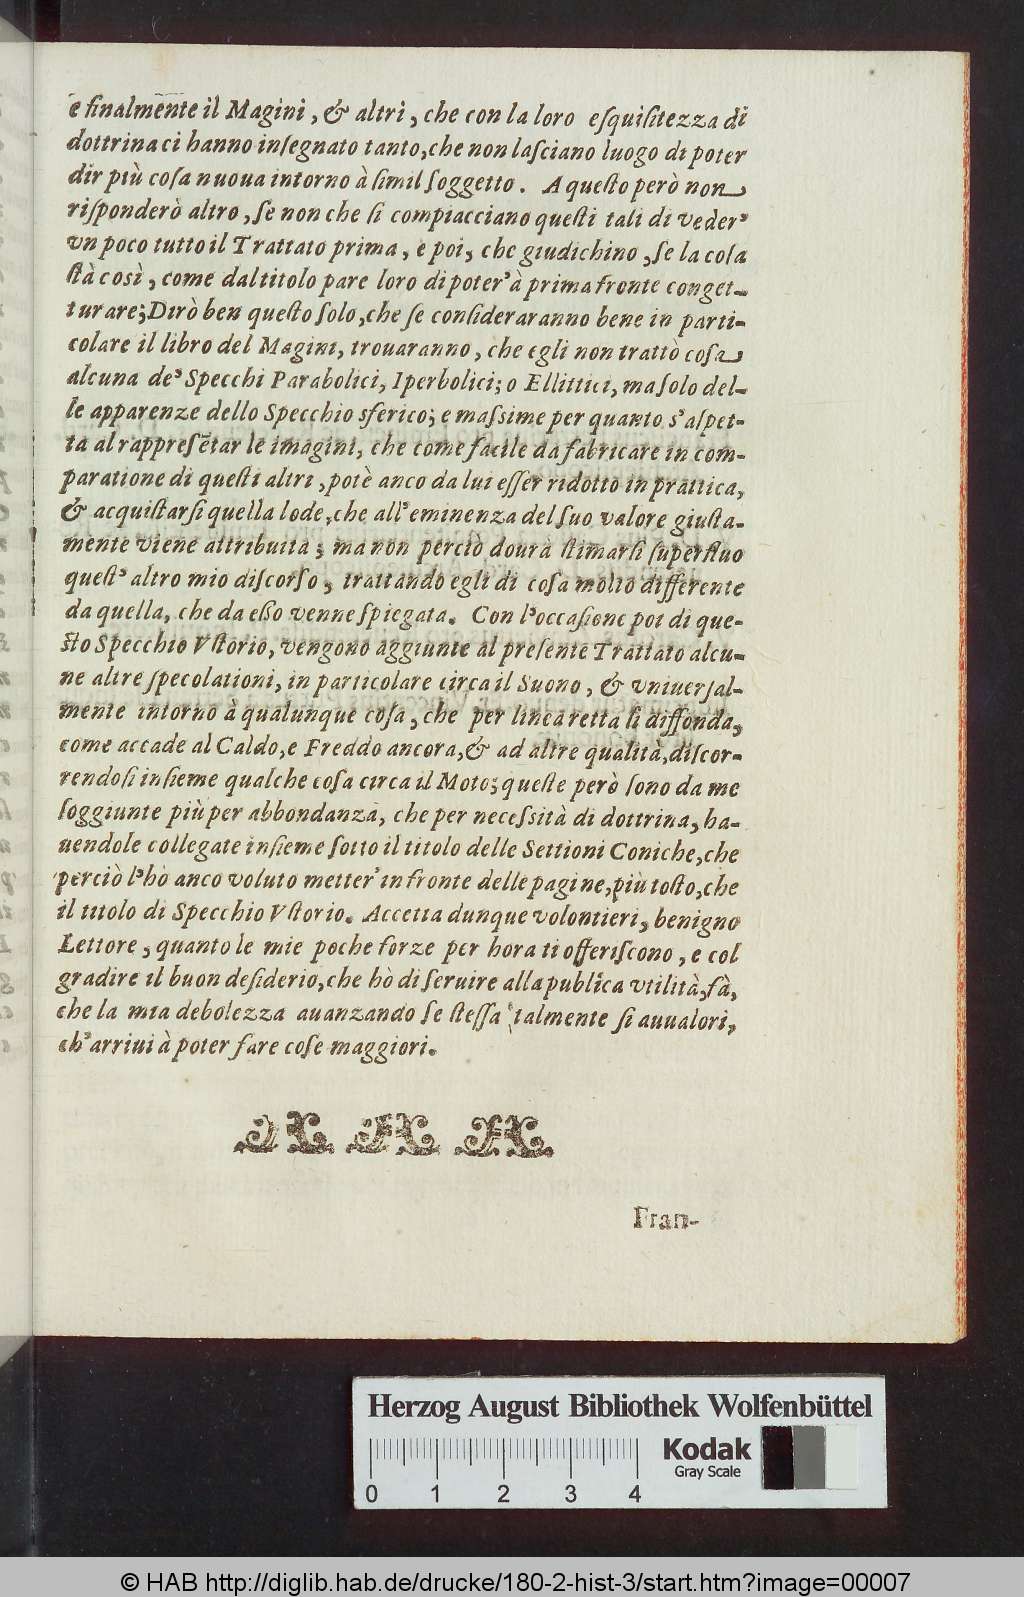 e finalmente il Magini, & altri, che con la loro eſquiſitezza di
dottrina ci hanno inſegnato tanto, che non laſciano luogo di poter
dir più coſa nuoua intorno à ſimil ſoggetto. A queſto però non
riſponderò altro, ſe non che ſi compiacciano queſti tali di veder'
vn poco tutto il Trattato prima, e poi, che giudichino, ſe la coſa
ſtà così, come dal titolo pare loro di poter' à prima fronte conget-
turare; Dirò ben queſto ſolo, che ſe conſideraranno bene in parti-
colare il libro del Magini, trouaranno, che egli non trattò coſa
alcuna de' Specchi Parabolici, Iperbolici; o Ellittici, ma ſolo del-
le apparenze dello Specchio sferico; e maſsime per quanto s'aſpet-
ta al rappreſẽtar le imagini, che come facile da fabricare in com-
paratione di queſti altri, potè anco da lui eſſer ridotto in prattica,
& acquiſtarſi quella lode, che all'eminenza del ſuo valore giuſta-
mente viene attribuita; ma non perciò dourà ſtimarſi ſuperfluo
queſt' altro mio diſcorſo, trattando egli di coſa molto differente
da quella, che da eßo venne ſpiegata. Con l'occaſione poi di que-
ſto Specchio Vſtorio, vengono aggiunte al preſente Trattato alcu-
ne altre ſpecolationi, in particolare circa il Suono, & vniuerſal-
mente intorno à qualunque coſa, che per linea retta ſi diffonda,
come accade al Caldo, e Freddo ancora, & ad altre qualità, diſcor-
rendoſi inſieme qualche coſa circa il Moto; queſte però ſono da me
ſoggiunte più per abbondanza, che per neceſsità di dottrina, ha-
uendole collegate inſieme ſotto il titolo delle Settioni Coniche, che
perciò l'hò anco voluto metter' in fronte delle pagine, più toſto, che
il titolo di Specchio Vſtorio. Accetta dunque volontieri, benigno
Lettore, quanto le mie poche forze per hora ti offeriſcono, e col
gradire il buon deſiderio, che hò di ſeruire alla publica vtilità, fà,
che la mia debolezza auanzando ſe ſteſſa talmente ſi auualori,
ch'arriui à poter fare coſe maggiori.
Fran-
Herzog August Bibliothek Wolfenbüttel
Kodak
Gray Scale
0 1 2 3 4
© HAB http://diglib.hab.de/drucke/180-2-hist-3/start.htm?image=00007